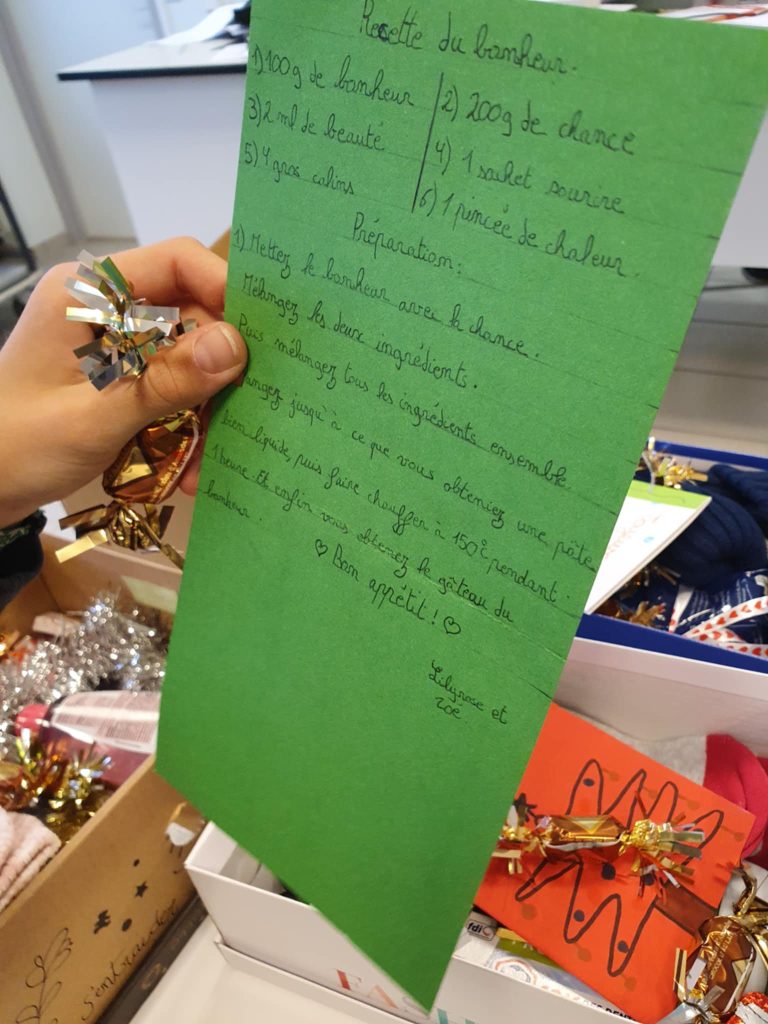 Recette du bonheur.
1) 100g de bonheur
2) 200g de chance
3) 2 ml de beauté
4) 1 sachet sourire
5) 4 gros calins
6) 1 pincée de chaleur.
Préparation:
1) Mettez le bonheur avec la chance.
Mélangez les deux ingrédients.
Puis mélangez tous les ingrédients ensemble
angez jusqu'à ce que vous obteniez une pâte
bien liquide, puis faire chauffer à 150°C pendant
1 heure. Et enfin vous obtenez le gâteau du
bonheur.
♡ Bon appétit ! ♡
Lilyrose et
Zoé
s'entraider
fdi
FASH